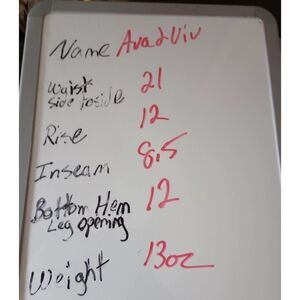 Name Ava & Viv
Waist 21
side to side
Rise 12
Inseam 8.5
Bottom Hem 12
Leg opening
Weight 13oz